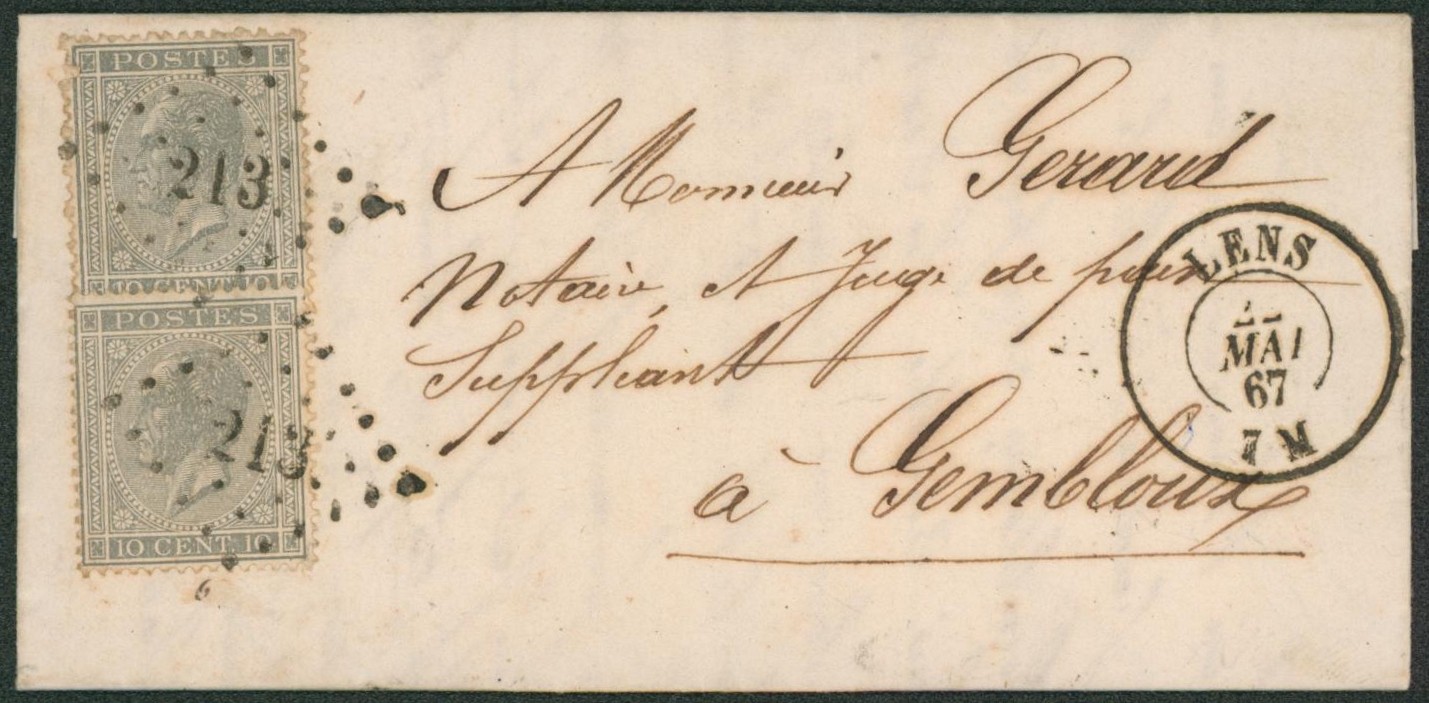 POSTES
213
10 CENT 10
POSTES
213
10 CENT 10
A Monsieur Gerard
Notaire et Juge de paix
Suppléant
à Gembloux
LENS
22
MAI
67
7 M